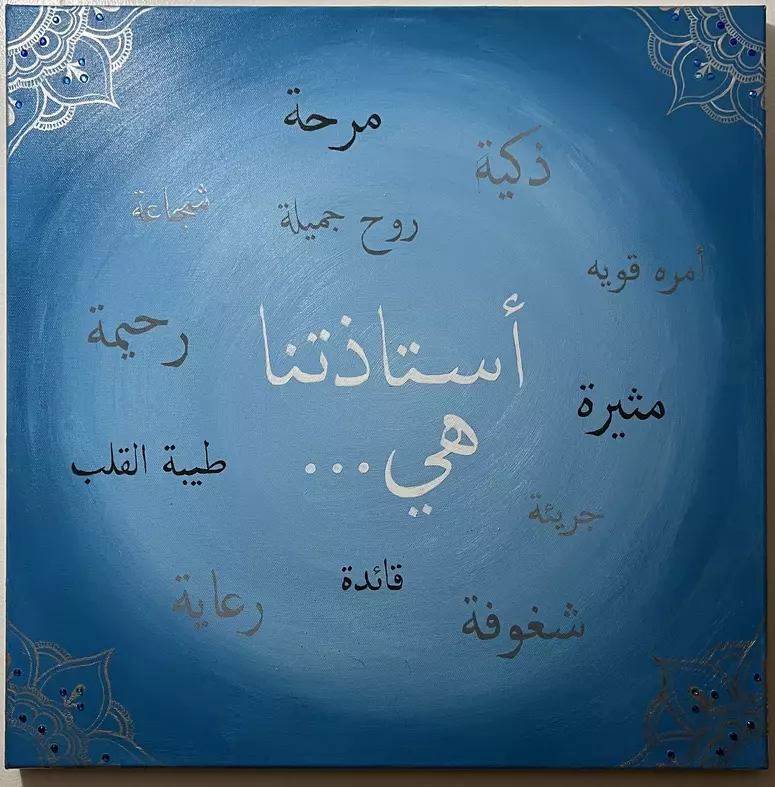 مرحة
ذكية
شجاعة
روح جميلة
أمره قويه
رحيمة
أستاذتنا
هي...
مثيرة
طيبة القلب
جريئة
قائدة
رعاية
شغوفة